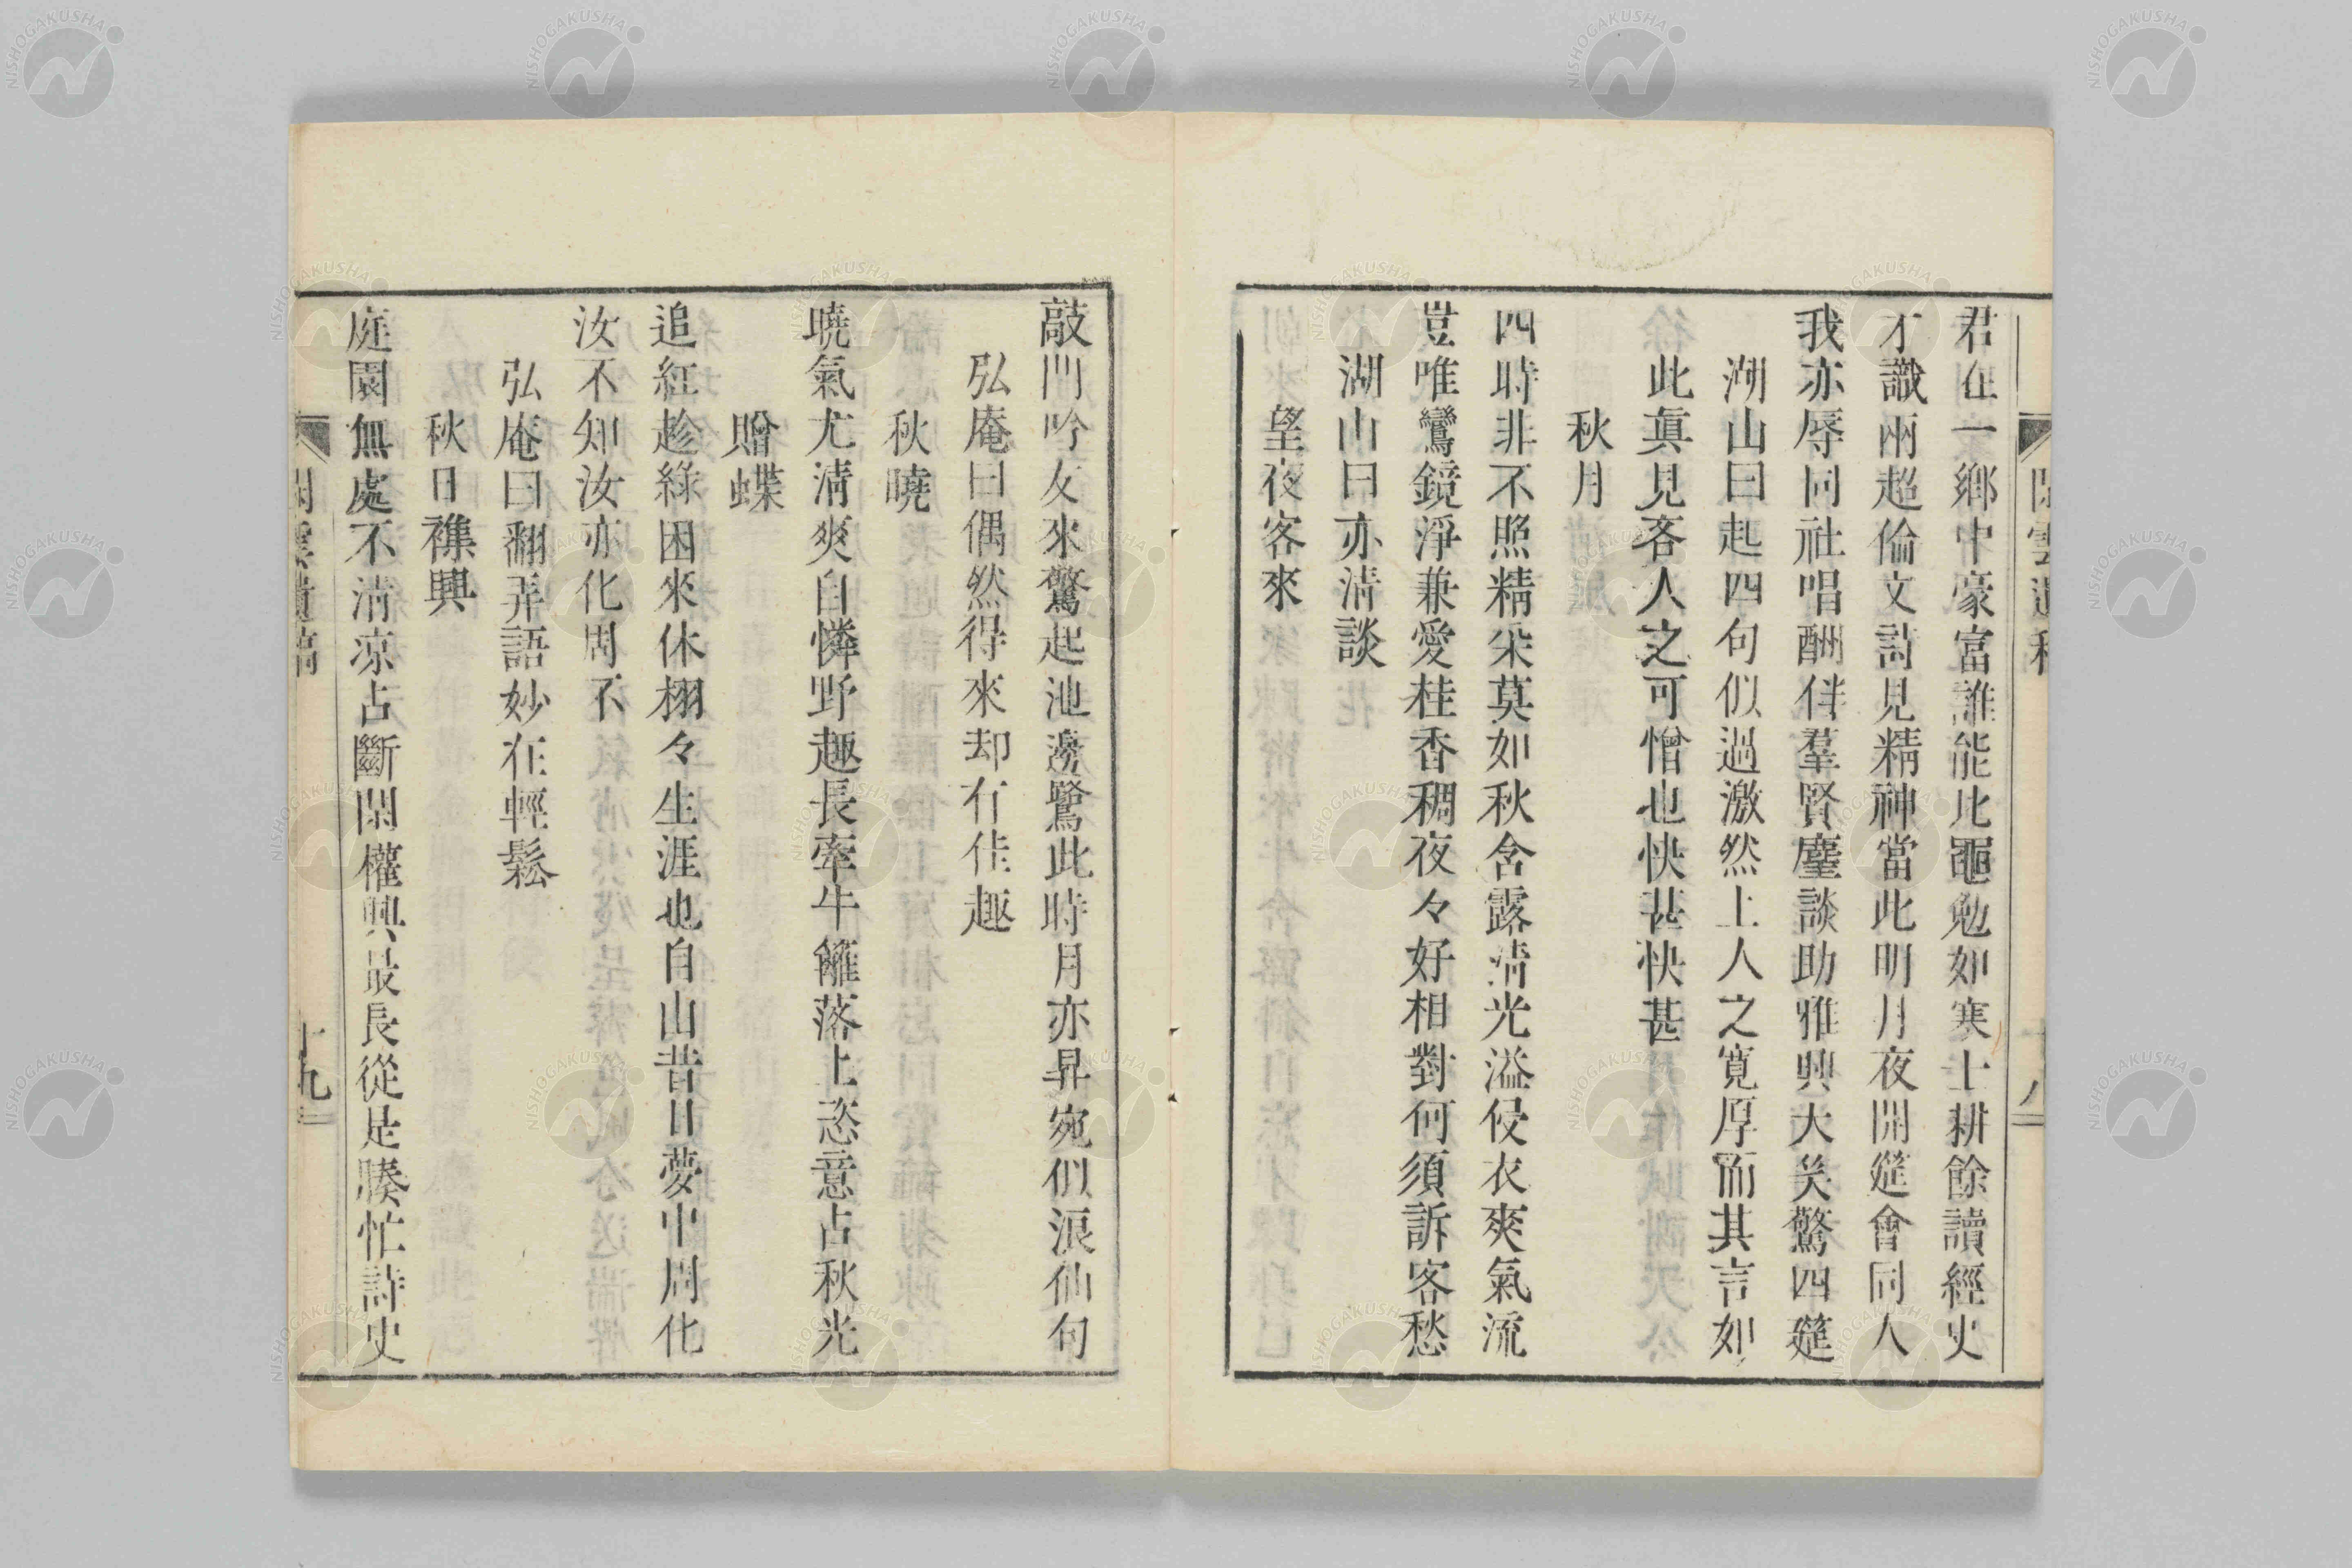 君在一鄉中豪富誰能比黽勉如寒士耕餘讀經史
才識兩超倫文詩見精神當此明月夜開筵會同人
我亦辱同社唱酬伴羣賢麈談助雅興大矣驚四筵
湖山曰起四句似過激然上人之寛厚而其言如
此眞見吝人之可憎也快甚快甚
秋月
四時非不照精采莫如秋含露清光溢侵衣爽氣流
豈唯鸞鏡淨兼愛桂香稠夜々好相對何須訴客愁
湖山曰亦清談
望夜客來
敲門吟友來驚起池邊鷺此時月亦昇宛似浪仙句
弘庵曰偶然得來却有佳趣
秋曉
曉氣尤清爽自憐野趣長牽牛籬落上恣意占秋光
贈蝶
追紅趁綠困來休栩々生涯也自由昔日夢中周化
汝不知汝亦化周不
弘庵曰翻弄語妙在輕鬆
秋日襍興
庭園無處不清凉占斷閑權興最長從是騰忙詩史
閑雲遺稿
十九